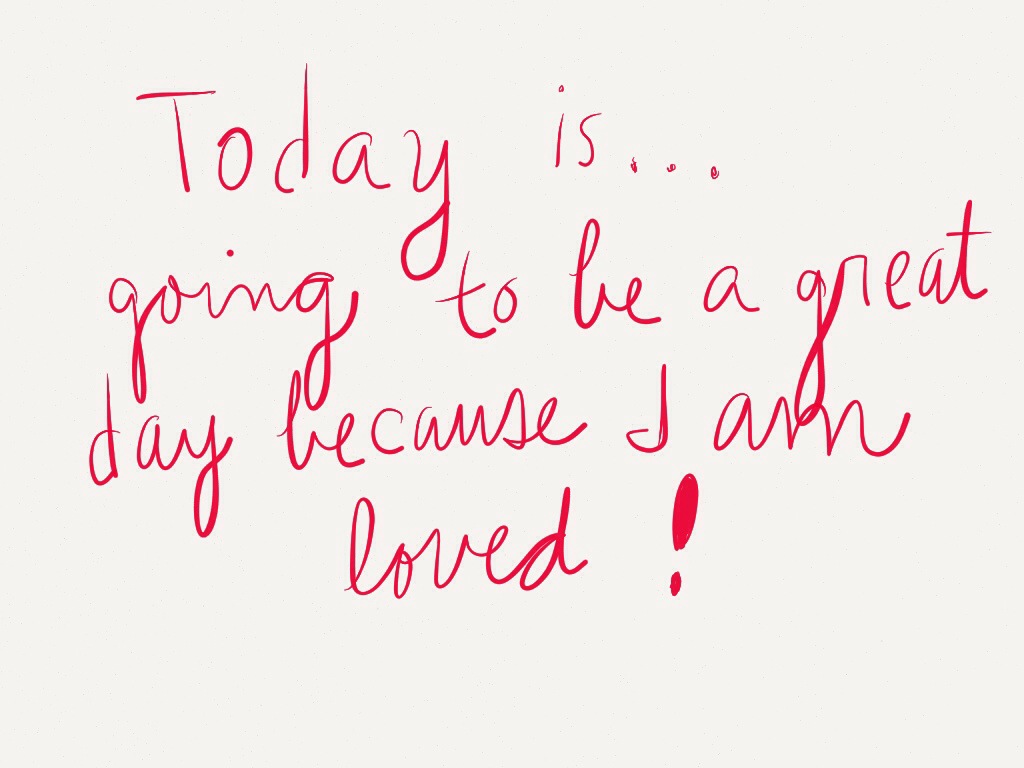 Today is...
going to be a great
day because I am
loved!